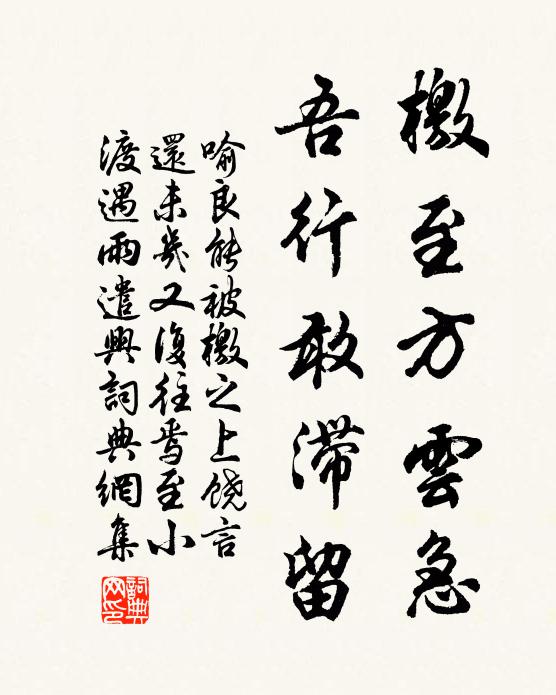 檄至方雲急
吾行敢滯留
喻良能被檄之上饒言
還未幾又復往焉至小
渡遇雨遣興詞典網集
詞典
网印